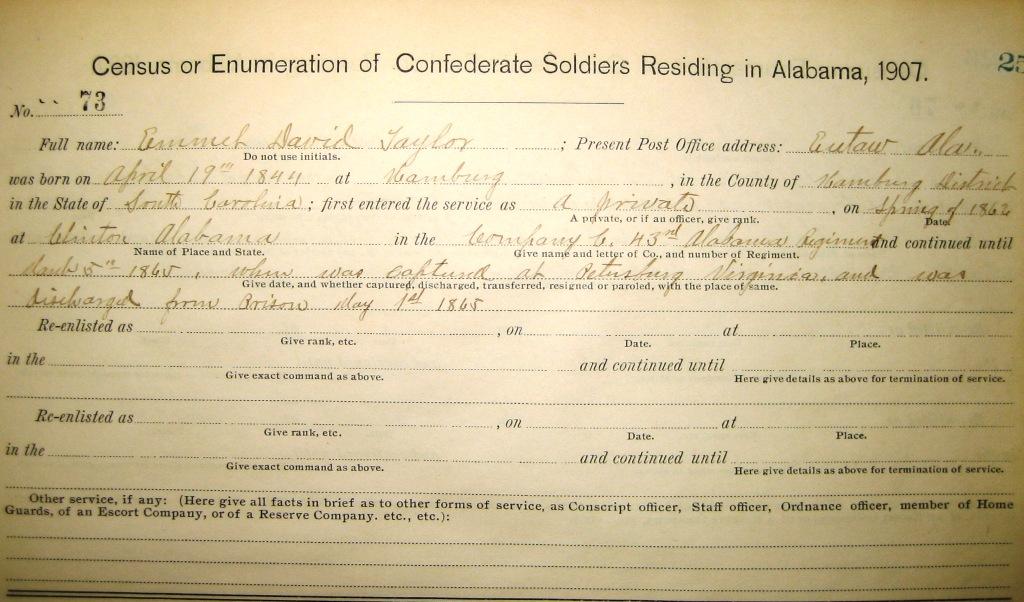 25
Census or Enumeration of Confederate Soldiers Residing in Alabama, 1907.
No. 73
Full name: Emmet David Taylor ; Present Post Office address: Eutaw Ala.
Do not use initials.
was born on April 19th 1844 at Hamburg , in the County of Hamburg District
in the State of South Carolina ; first entered the service as a private , on Spring of 1862
A private, or if an officer, give rank. Date.
at Clinton Alabama in the Company C. 43rd Alabama Regiment and continued until
Name of Place and State. Give name and letter of Co., and number of Regiment.
5th 1865, when was captured at Petersburg Virginia, and was
Give date, and whether captured, discharged, transferred, resigned or paroled, with the place of same.
discharged from Prison May 1st 1865
Re-enlisted as , on at
Give rank, etc. Date. Place.
in the and continued until
Give exact command as above. Here give details as above for termination of service.
Re-enlisted as , on at
Give rank, etc. Date. Place.
in the and continued until
Give exact command as above. Here give details as above for termination of service.
Other service, if any: (Here give all facts in brief as to other forms of service, as Conscript officer, Staff officer, Ordnance officer, member of Home
Guards, of an Escort Company, or of a Reserve Company. etc., etc.):